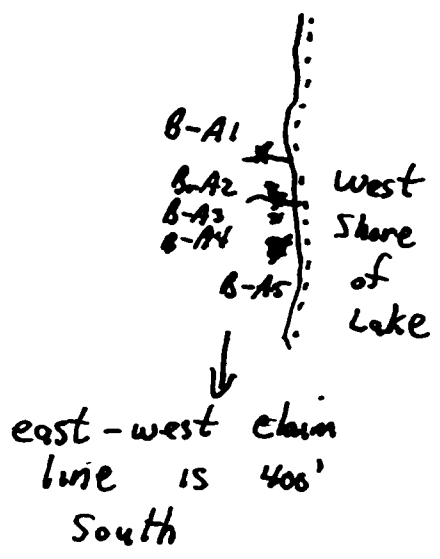 B-A1
B-A2
B-A3
B-A4
B-A5
West
Shore
of
Lake
east-west claim
line is 400'
South